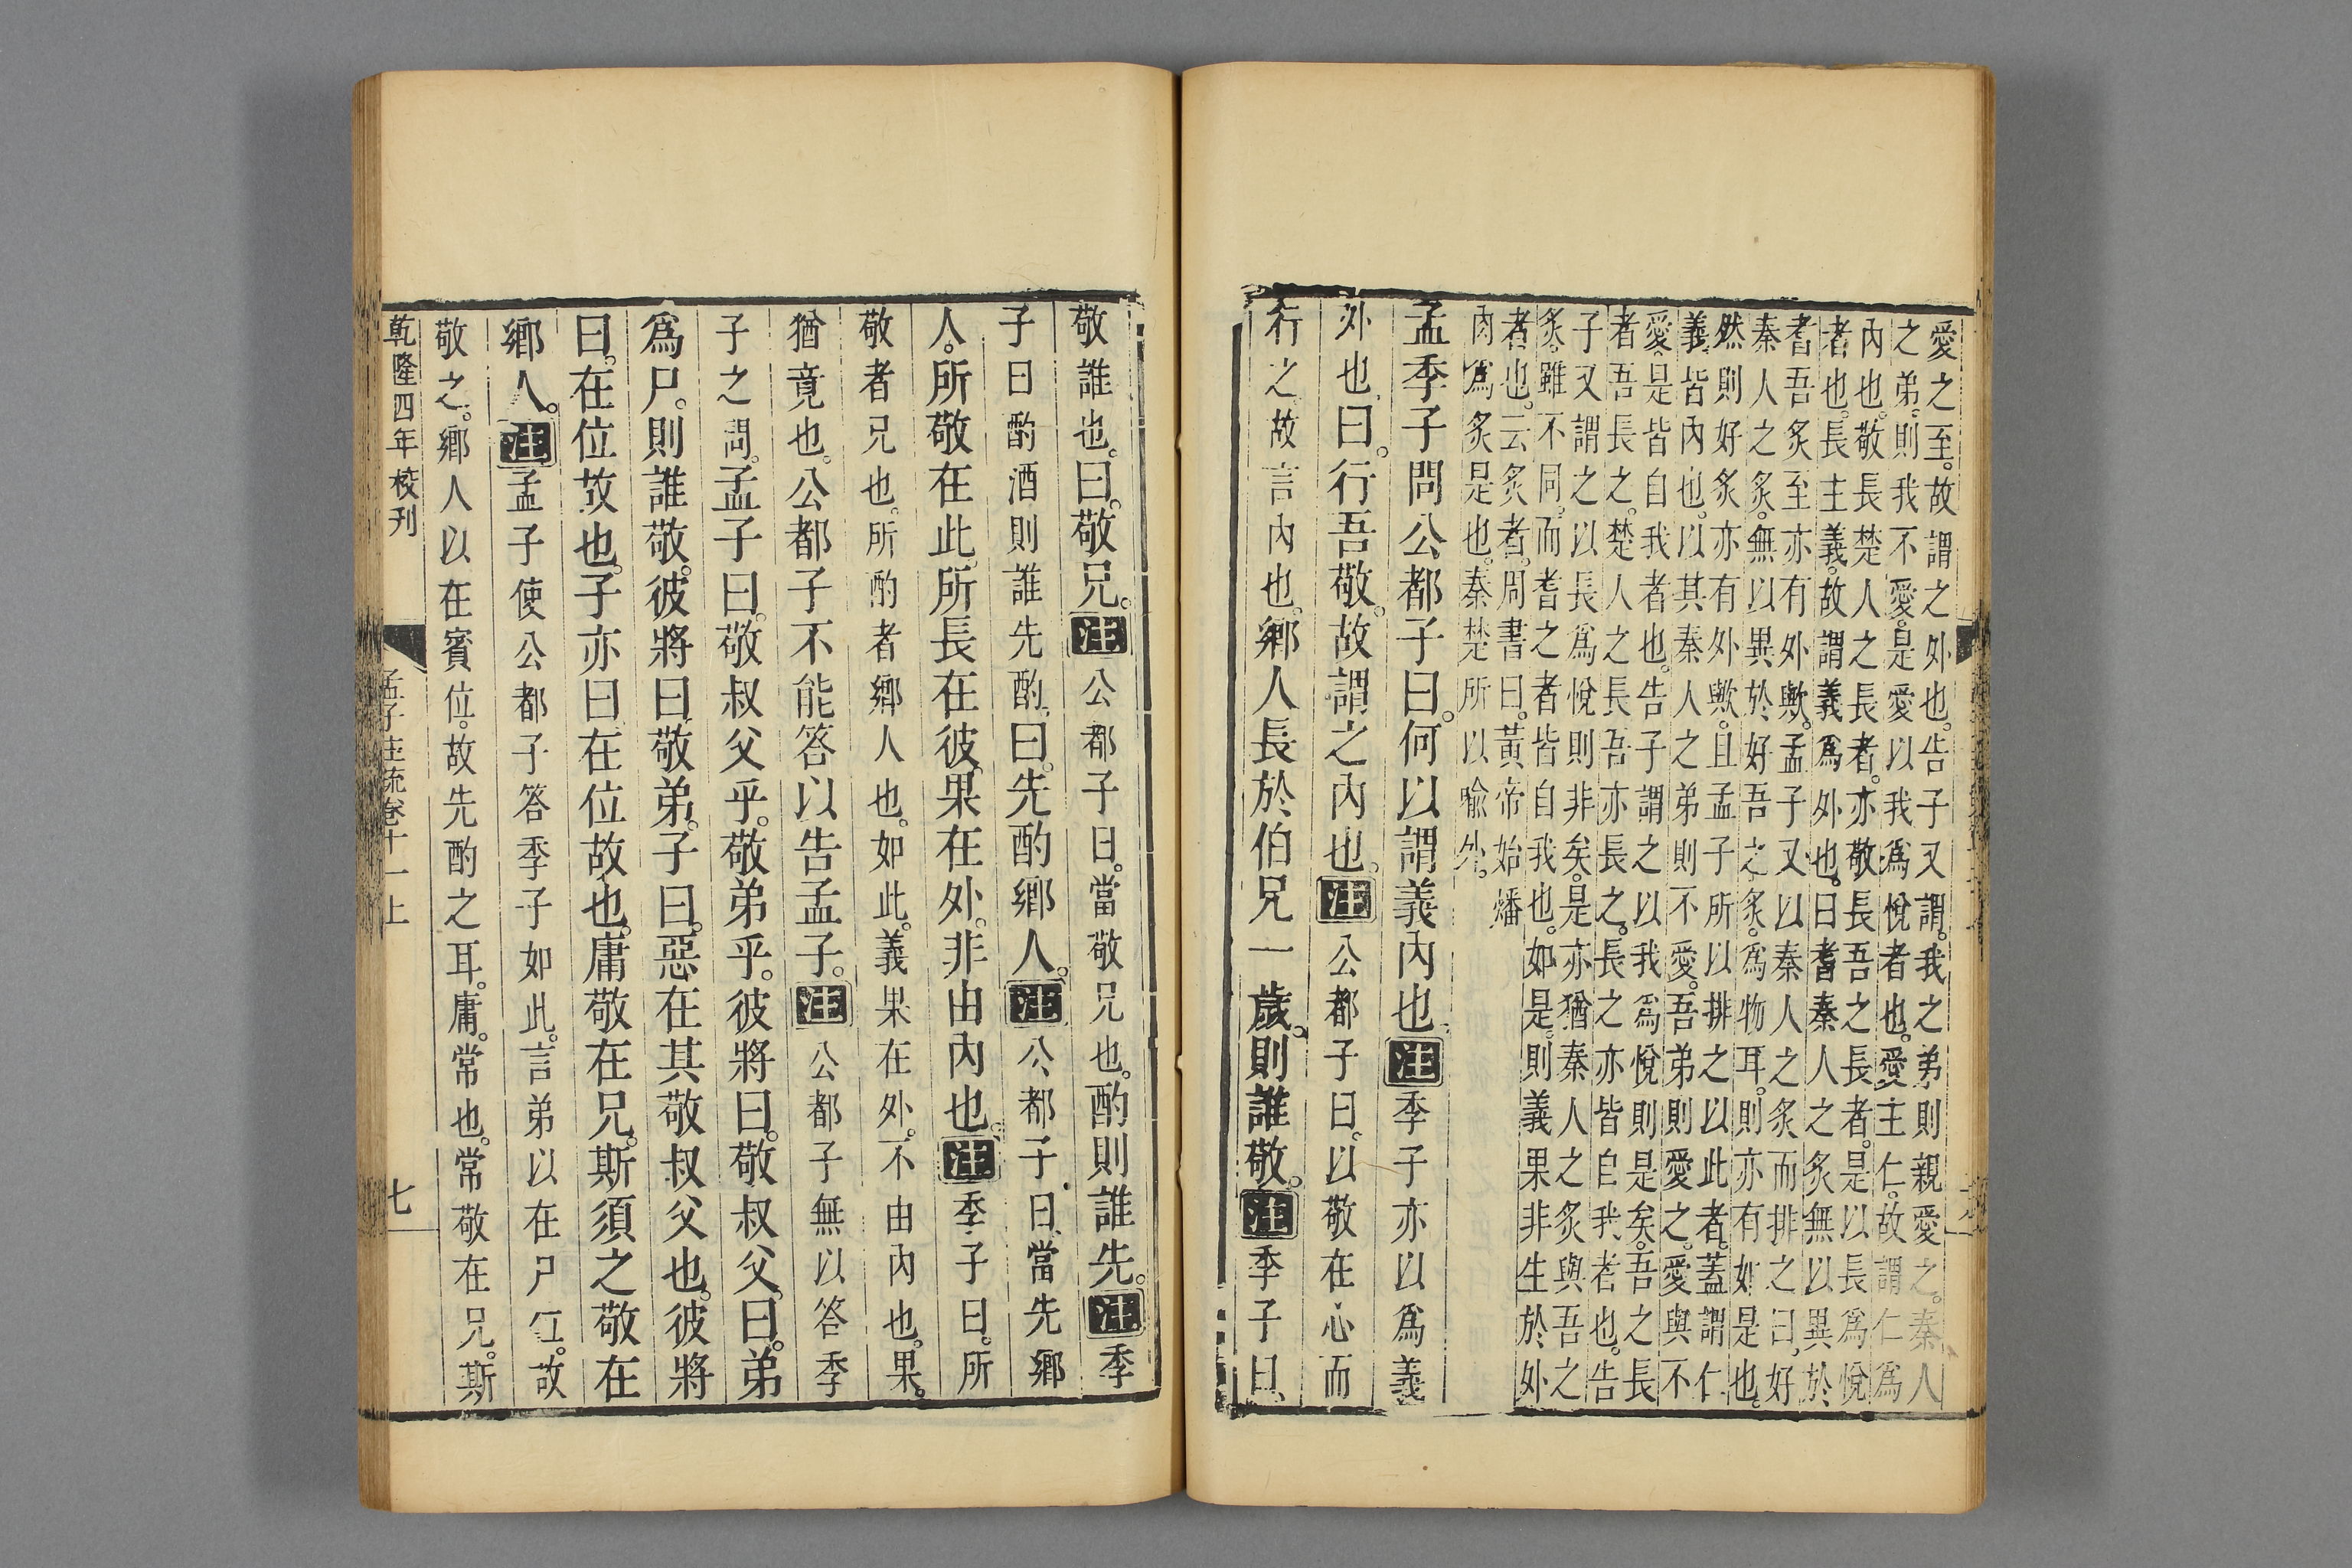 愛之至。故謂之外也。告子又謂。我之弟則親愛之。秦人
之弟。則我不愛。是愛以我爲悅者也。愛主仁。故謂仁爲
內也。敬長楚人之長者。亦敬長吾之長者。是以長爲悅
者也。長主義。故謂義爲外也。曰耆秦人之炙無以異於
耆吾炙至亦有外歟。孟子又以秦人之炙而排之曰。好
秦人之炙。無以異於好吾之炙。爲物耳。則亦有如是也。
然則好炙亦有外歟。且孟子所以排之以此者。蓋謂仁
義皆內也。以其秦人之弟則不愛。吾弟則愛之。愛與不
愛。是皆自我者也。告子謂之以我爲悅則是矣。吾之長
者吾長之。楚人之長吾亦長之。長之亦皆自我者也。告
子又謂之以長爲悅則非矣。是亦猶秦人之炙與吾之
炙。雖不同。而耆之者皆自我也。如是。則義果非生於外
者也。云炙者。周書曰。黃帝始燔
肉爲炙是也。秦楚所以喻外。
孟季子問公都子曰。何以謂義內也。注季子亦以爲義
外也。曰。行吾敬。故謂之內也。注公都子曰。以敬在心而
行之。故言內也。鄉人長於伯兄一歲。則誰敬。注季子曰。
敬誰也。曰。敬兄。注公都子曰。當敬兄也。酌則誰先。注季
子曰酌酒則誰先酌。曰。先酌鄉人。注公都子曰。當先鄉
人。所敬在此。所長在彼。果在外。非由內也。注季子曰。所
敬者兄也。所酌者鄉人也。如此。義果在外。不由內也。果。
猶竟也。公都子不能答以告孟子。注公都子無以答季
子之問。孟子曰。敬叔父乎。敬弟乎。彼將曰。敬叔父。曰。弟
爲尸。則誰敬。彼將曰敬弟。子曰。惡在其敬叔父也。彼將
曰。在位故也。子亦曰在位故也。庸敬在兄。斯須之敬在
鄉人。注孟子使公都子答季子如此。言弟以在尸位。故
敬之。鄉人以在賓位。故先酌之耳。庸。常也。常敬在兄。斯
乾隆四年校刊
孟子注疏卷十一上
七